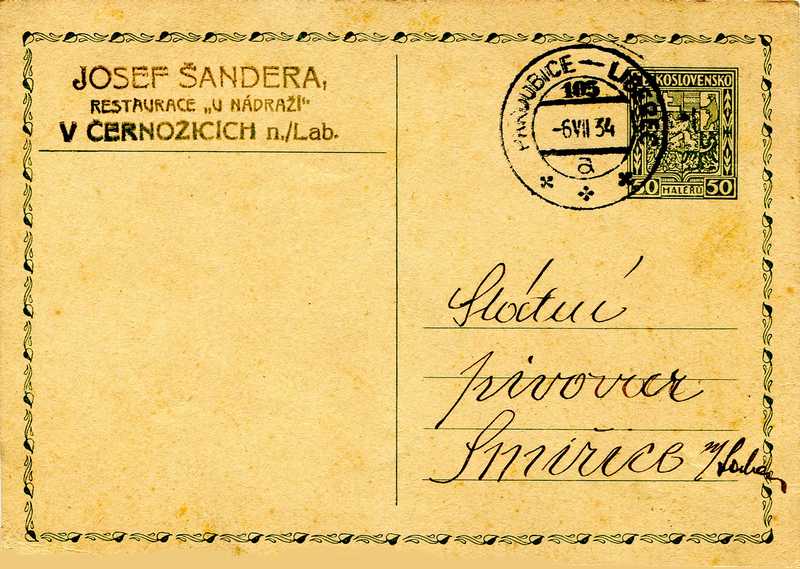 JOSEF ŠANDERA,
RESTAURACE „U NÁDRAŽÍ"
V ČERNOŽICÍCH n./Lab.
PARDUBICE — LIBEREC
105
-6VII 34
a
ČESKOSLOVENSKO
50 HALÉŘŮ 50
Státní
pivovar
Smiřice n/Labem